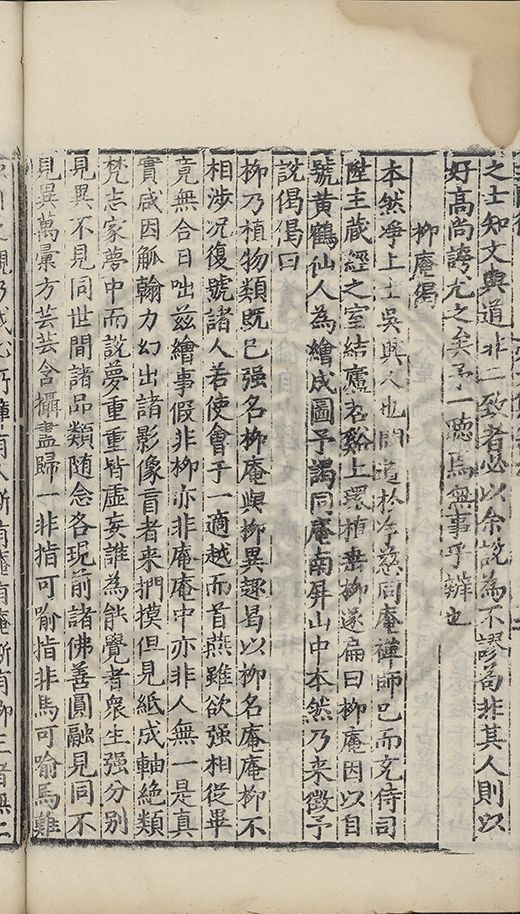 之士知文與道非二致者必以余說為不謬苟非其人則以
好高尚誇尤之矣予一聽焉無事乎辨也
柳庵偈
本然淨上士吳興人也問道於淨慈同庵禪師已而充侍司
陞主藏經之室結廬若谿上環植垂柳遂扁曰柳庵因以自
號黃鶴仙人為繪成圖予謁同庵南屏山中本然乃来徵予
說偈偈曰
柳乃植物類既已强名柳庵與柳異趣曷以柳名庵庵柳不
相涉况復號諸人若使會于一適越而首燕雖欲强相從畢
竟無合日咄兹繪事假非柳亦非庵庵中亦非人無一是真
實咸因觚翰力幻出諸影像盲者来捫摸但見紙成軸絶類
梵志家夢中而說夢重重皆虛妄誰為能覺者衆生强分别
見異不見同世間諸品類随念各現前諸佛善圓融見同不
見異萬彙方芸芸含攝盡歸一非指可喻指非馬可喻馬難
有庵有庵斯有柳三者無二